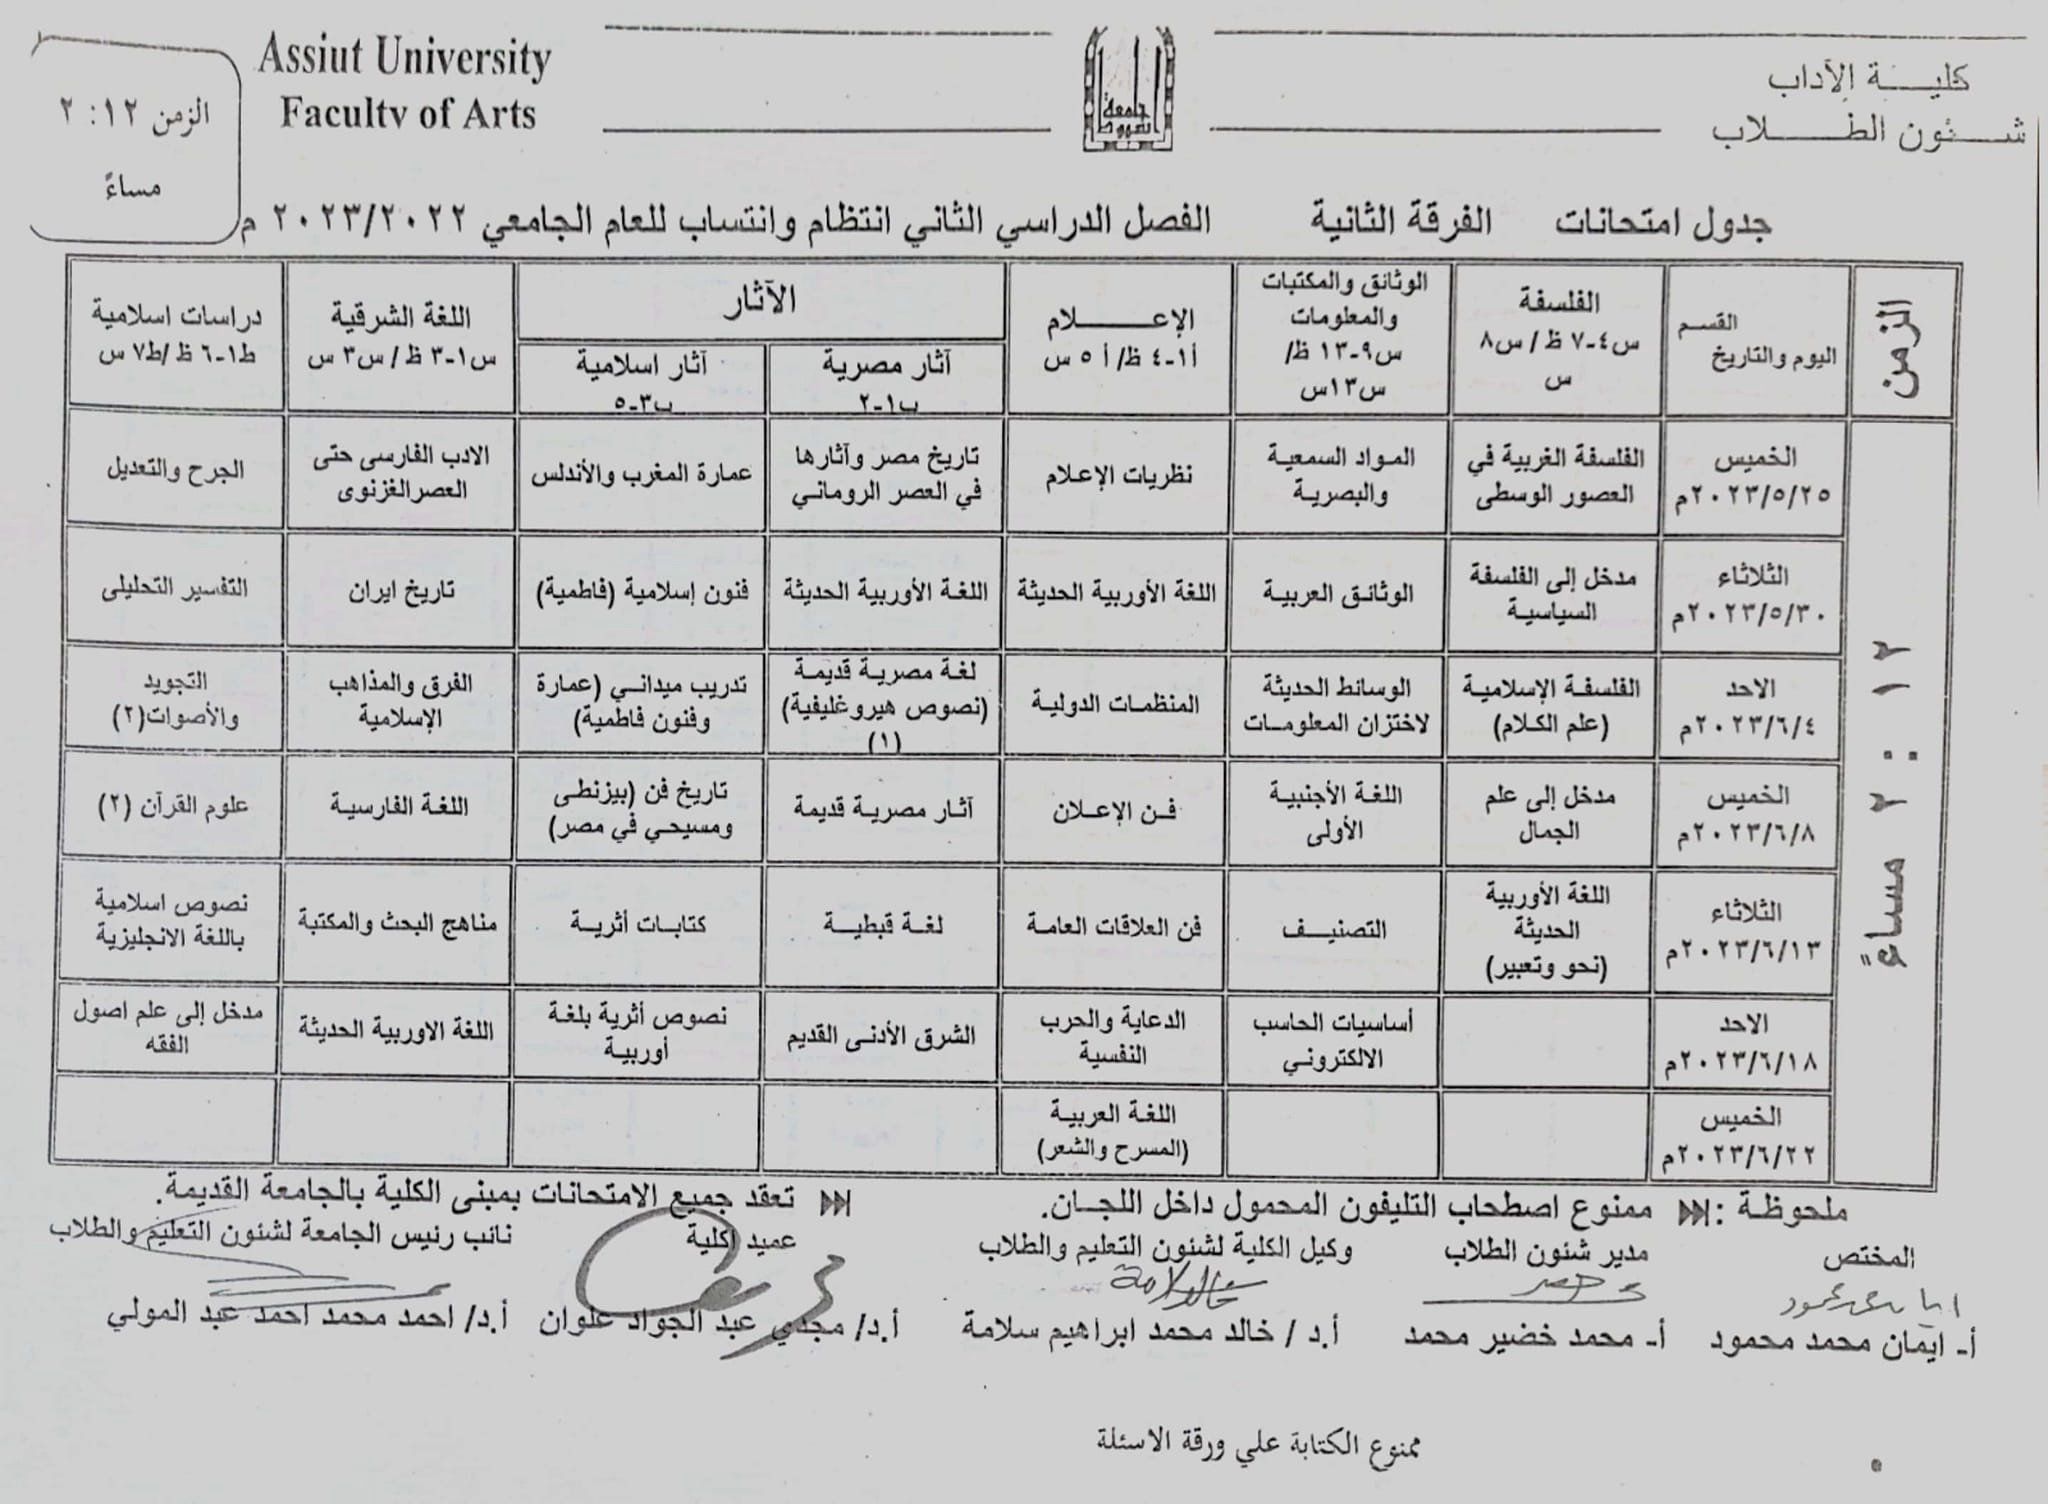 Assiut University
Faculty of Arts
كليـــة الآداب
شـــئون الطـــلاب
الزمن ١٢ : ٢
مساءً
جامعة
أسيوط
جدول امتحانات الفرقة الثانية الفصل الدراسي الثاني انتظام وانتساب للعام الجامعي ٢٠٢٣/٢٠٢٢ م
الزمن
القسم
اليوم والتاريخ
الفلسفة
س٤-٧ ظ / س٨
س
الوثائق والمكتبات
والمعلومات
س٩-١٣ ظ/
س١٣س
الإعـــلام
أ١-٤ ظ/ أ ٥ س
الآثار
آثار مصرية
ب١-٢
آثار اسلامية
ب٣-٥
اللغة الشرقية
س١-٣ ظ / س٣ س
دراسات اسلامية
ط١-٦ ظ /ط٧ س
١٢ : ٢ مساءً
الخميس
٢٠٢٣/٥/٢٥م
الفلسفة الغربية في
العصور الوسطى
المواد السمعية
والبصرية
نظريات الإعلام
تاريخ مصر وآثارها
في العصر الروماني
عمارة المغرب والأندلس
الادب الفارسى حتى
العصرالغزنوى
الجرح والتعديل
الثلاثاء
٢٠٢٣/٥/٣٠م
مدخل إلى الفلسفة
السياسية
الوثائق العربية
اللغة الأوربية الحديثة
اللغة الأوربية الحديثة
فنون إسلامية (فاطمية)
تاريخ ايران
التفسير التحليلى
الاحد
٢٠٢٣/٦/٤م
الفلسفة الإسلامية
(علم الكلام)
الوسائط الحديثة
لاختزان المعلومات
المنظمات الدولية
لغة مصرية قديمة
(نصوص هيروغليفية)
(١)
تدريب ميداني (عمارة
وفنون فاطمية)
الفرق والمذاهب
الإسلامية
التجويد
والأصوات(٢)
الخميس
٢٠٢٣/٦/٨م
مدخل إلى علم
الجمال
اللغة الأجنبية
الأولى
فن الإعلان
آثار مصرية قديمة
تاريخ فن (بيزنطى
ومسيحي في مصر)
اللغة الفارسية
علوم القرآن (٢)
الثلاثاء
٢٠٢٣/٦/١٣م
اللغة الأوربية
الحديثة
(نحو وتعبير)
التصنيف
فن العلاقات العامة
لغة قبطية
كتابات أثرية
مناهج البحث والمكتبة
نصوص اسلامية
باللغة الانجليزية
الاحد
٢٠٢٣/٦/١٨م
أساسيات الحاسب
الالكتروني
الدعاية والحرب
النفسية
الشرق الأدنى القديم
نصوص أثرية بلغة
أوربية
اللغة الاوربية الحديثة
مدخل إلى علم اصول
الفقه
الخميس
٢٠٢٣/٦/٢٢م
اللغة العربية
(المسرح والشعر)
ملحوظة : ممنوع اصطحاب التليفون المحمول داخل اللجان. تعقد جميع الامتحانات بمبنى الكلية بالجامعة القديمة.
المختص
مدير شئون الطلاب
وكيل الكلية لشئون التعليم والطلاب
عميد الكلية
نائب رئيس الجامعة لشئون التعليم والطلاب
خالد سلامة
أ- ايمان محمد محمود
أ- محمد خضير محمد
أ.د / خالد محمد ابراهيم سلامة
أ.د/ مجدي عبد الجواد علوان
أ.د/ احمد محمد احمد عبد المولي
ممنوع الكتابة علي ورقة الاسئلة